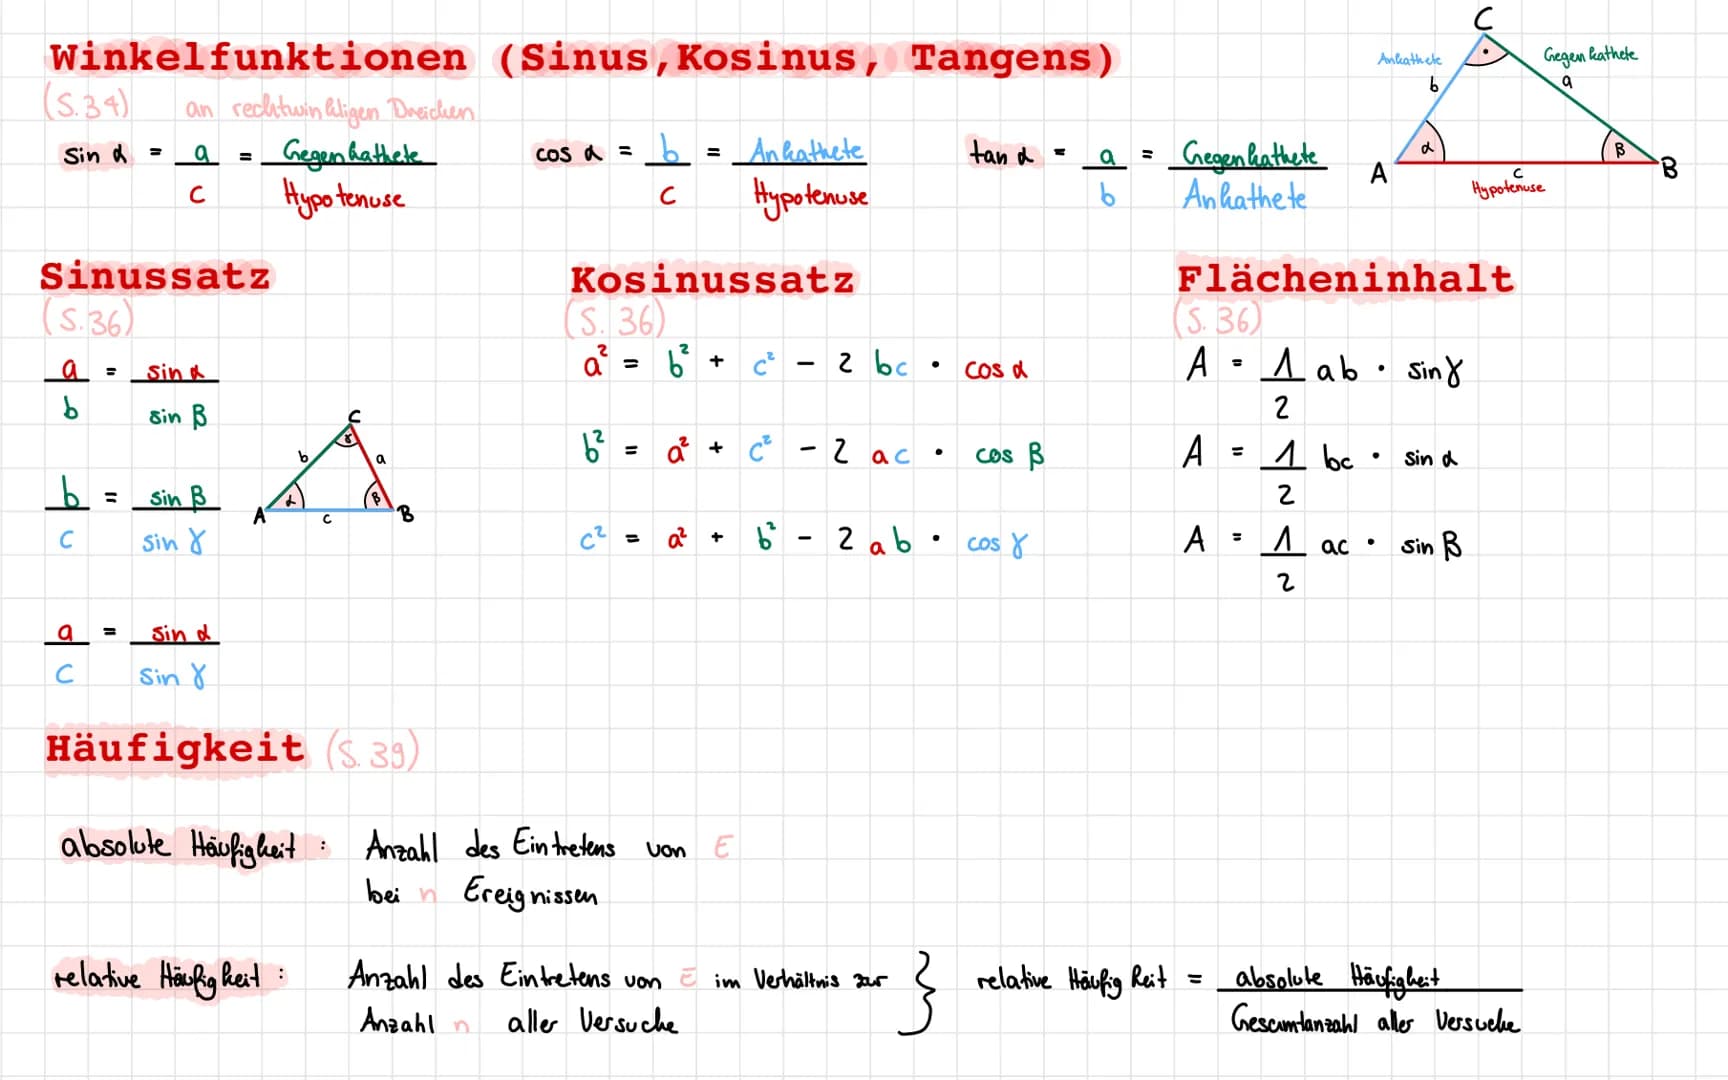 Winkelfunktionen (Sinus, Kosinus, Tangens)
(S.34) an rechtwinkligen Dreicken
sin α = a/c = Gegenkathete/Hypotenuse
cos α = b/c = Ankathete/Hypotenuse
tan α = a/b = Gegenkathete/Ankathete
C
Ankathete
Gegenkathete
b
a
α
β
A
c
B
Hypotenuse
Sinussatz
(S.36)
a/b = sin α/sin β
b/c = sin β/sin γ
a/c = sin α/sin γ
C
γ
b
a
α
β
A
c
B
Kosinussatz
(S. 36)
a² = b² + c² - 2 bc · cos α
b² = a² + c² - 2 ac · cos β
c² = a² + b² - 2 ab · cos γ
Flächeninhalt
(S. 36)
A = 1/2 ab · sin γ
A = 1/2 bc · sin α
A = 1/2 ac · sin β
Häufigkeit (S.39)
absolute Häufigkeit : Anzahl des Eintretens von E
bei n Ereignissen
relative Häufigkeit : Anzahl des Eintretens von E im Verhältnis zur
Anzahl n aller Versuche
} relative Häufigkeit = absolute Häufigkeit/Gesamtanzahl aller Versuche